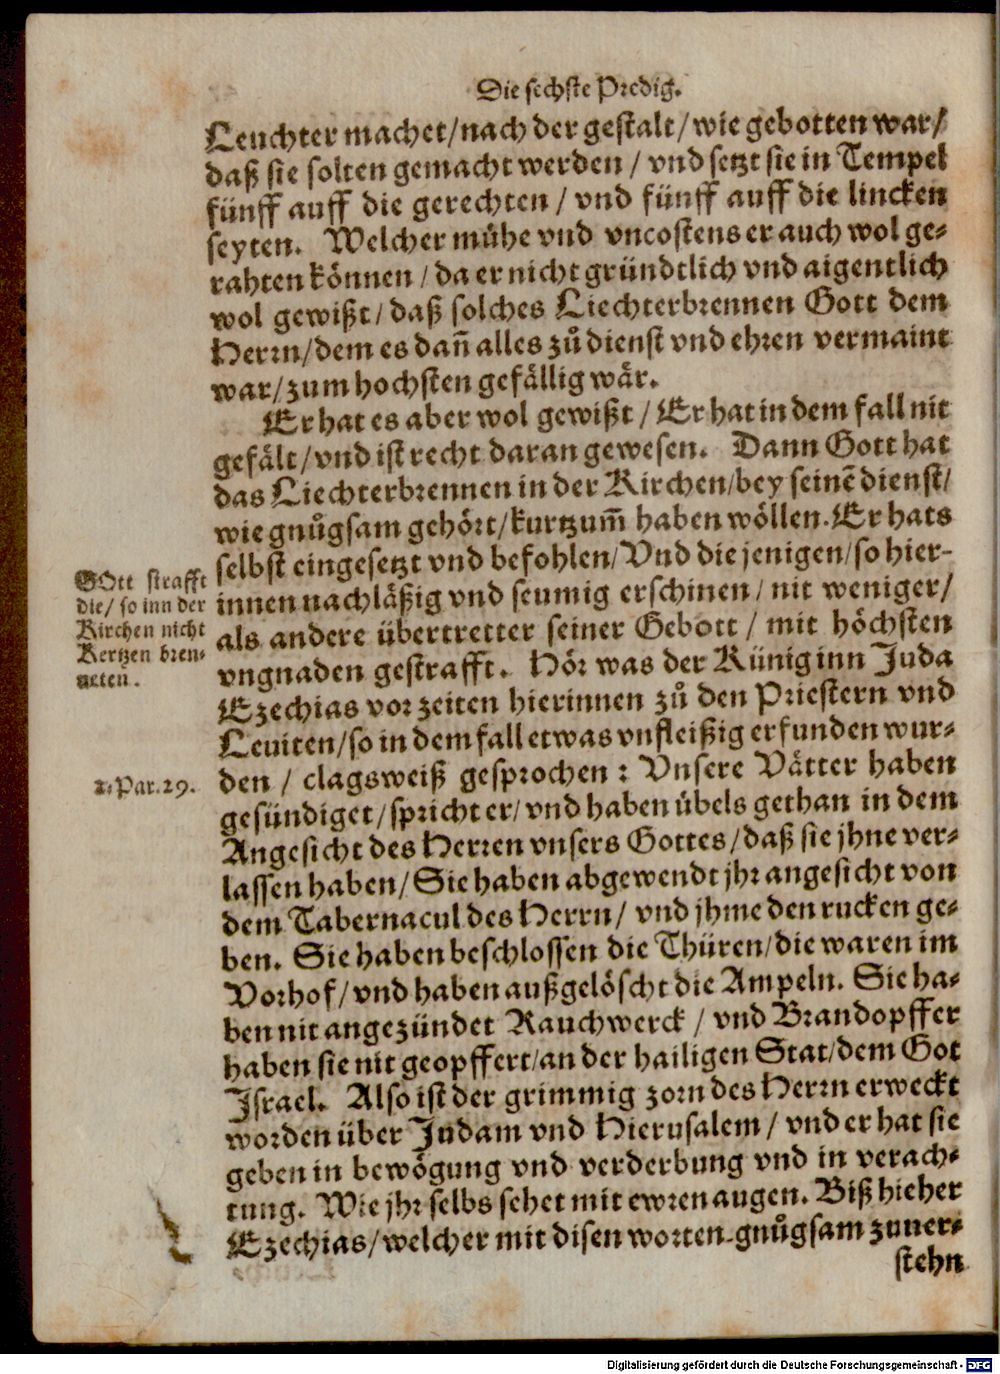 Die sechste Predig.
Leuchter machet/nach der gestalt/wie gebotten war/
daß sie solten gemacht werden / vnd setzt sie in Tempel
fünff auff die gerechten / vnd fünff auff die lincken
seyten. Welcher mühe vnd vncostens er auch wol ge-
rahten können / da er nicht gründtlich vnd aigentlich
wol gewißt/daß solches Liechterbrennen Gott dem
Herrn/dem es dañ alles zů dienst vnd ehren vermaint
war/zum hochsten gefällig wär.
Er hat es aber wol gewißt / Er hat in dem fall nit
gefält/vnd ist recht daran gewesen. Dann Gott hat
das Liechterbrennen in der Kirchen/bey seinẽ dienst/
wie gnůgsam gehört/kurtzum̃ haben wöllen. Er hats
selbst eingesetzt vnd befohlen/Vnd die jenigen/so hier-
innen nachläßig vnd seumig erschinen/nit weniger/
als andere übertretter seiner Gebott / mit höchsten
vngnaden gestrafft. Hör was der Künig inn Juda
Ezechias vor zeiten hierinnen zů den Priestern vnd
Leuiten/so in dem fall etwas vnfleißig erfunden wur-
den / clagsweiß gesprochen: Vnsere Vätter haben
gesündiget/spricht er/vnd haben übels gethan in dem
Angesicht des Herren vnsers Gottes/daß sie jhne ver-
lassen haben/Sie haben abgewendt jhr angesicht von
dem Tabernacul des Herrn/ vnd jhme den rucken ge-
ben. Sie haben beschlossen die Thüren/die waren im
Vorhof/vnd haben außgelöscht die Ampeln. Sie ha-
ben nit angezündet Rauchwerck / vnd Brandopffer
haben sie nit geopffert/an der hailigen Stat/dem Got
Israel. Also ist der grimmig zorn des Herrn erweckt
worden über Judam vnd Hierusalem / vnd er hat sie
geben in bewögung vnd verderbung vnd in verach-
tung. Wie jhr selbs sehet mit ewren augen. Biß hieher
Ezechias/welcher mit disen worten gnůgsam zuuer-
stehn
GOtt strafft
die/ so inn der
Kirchen nicht
Kertzen bren-
neten.
2. Par. 29.
Digitalisierung gefördert durch die Deutsche Forschungsgemeinschaft - DFG